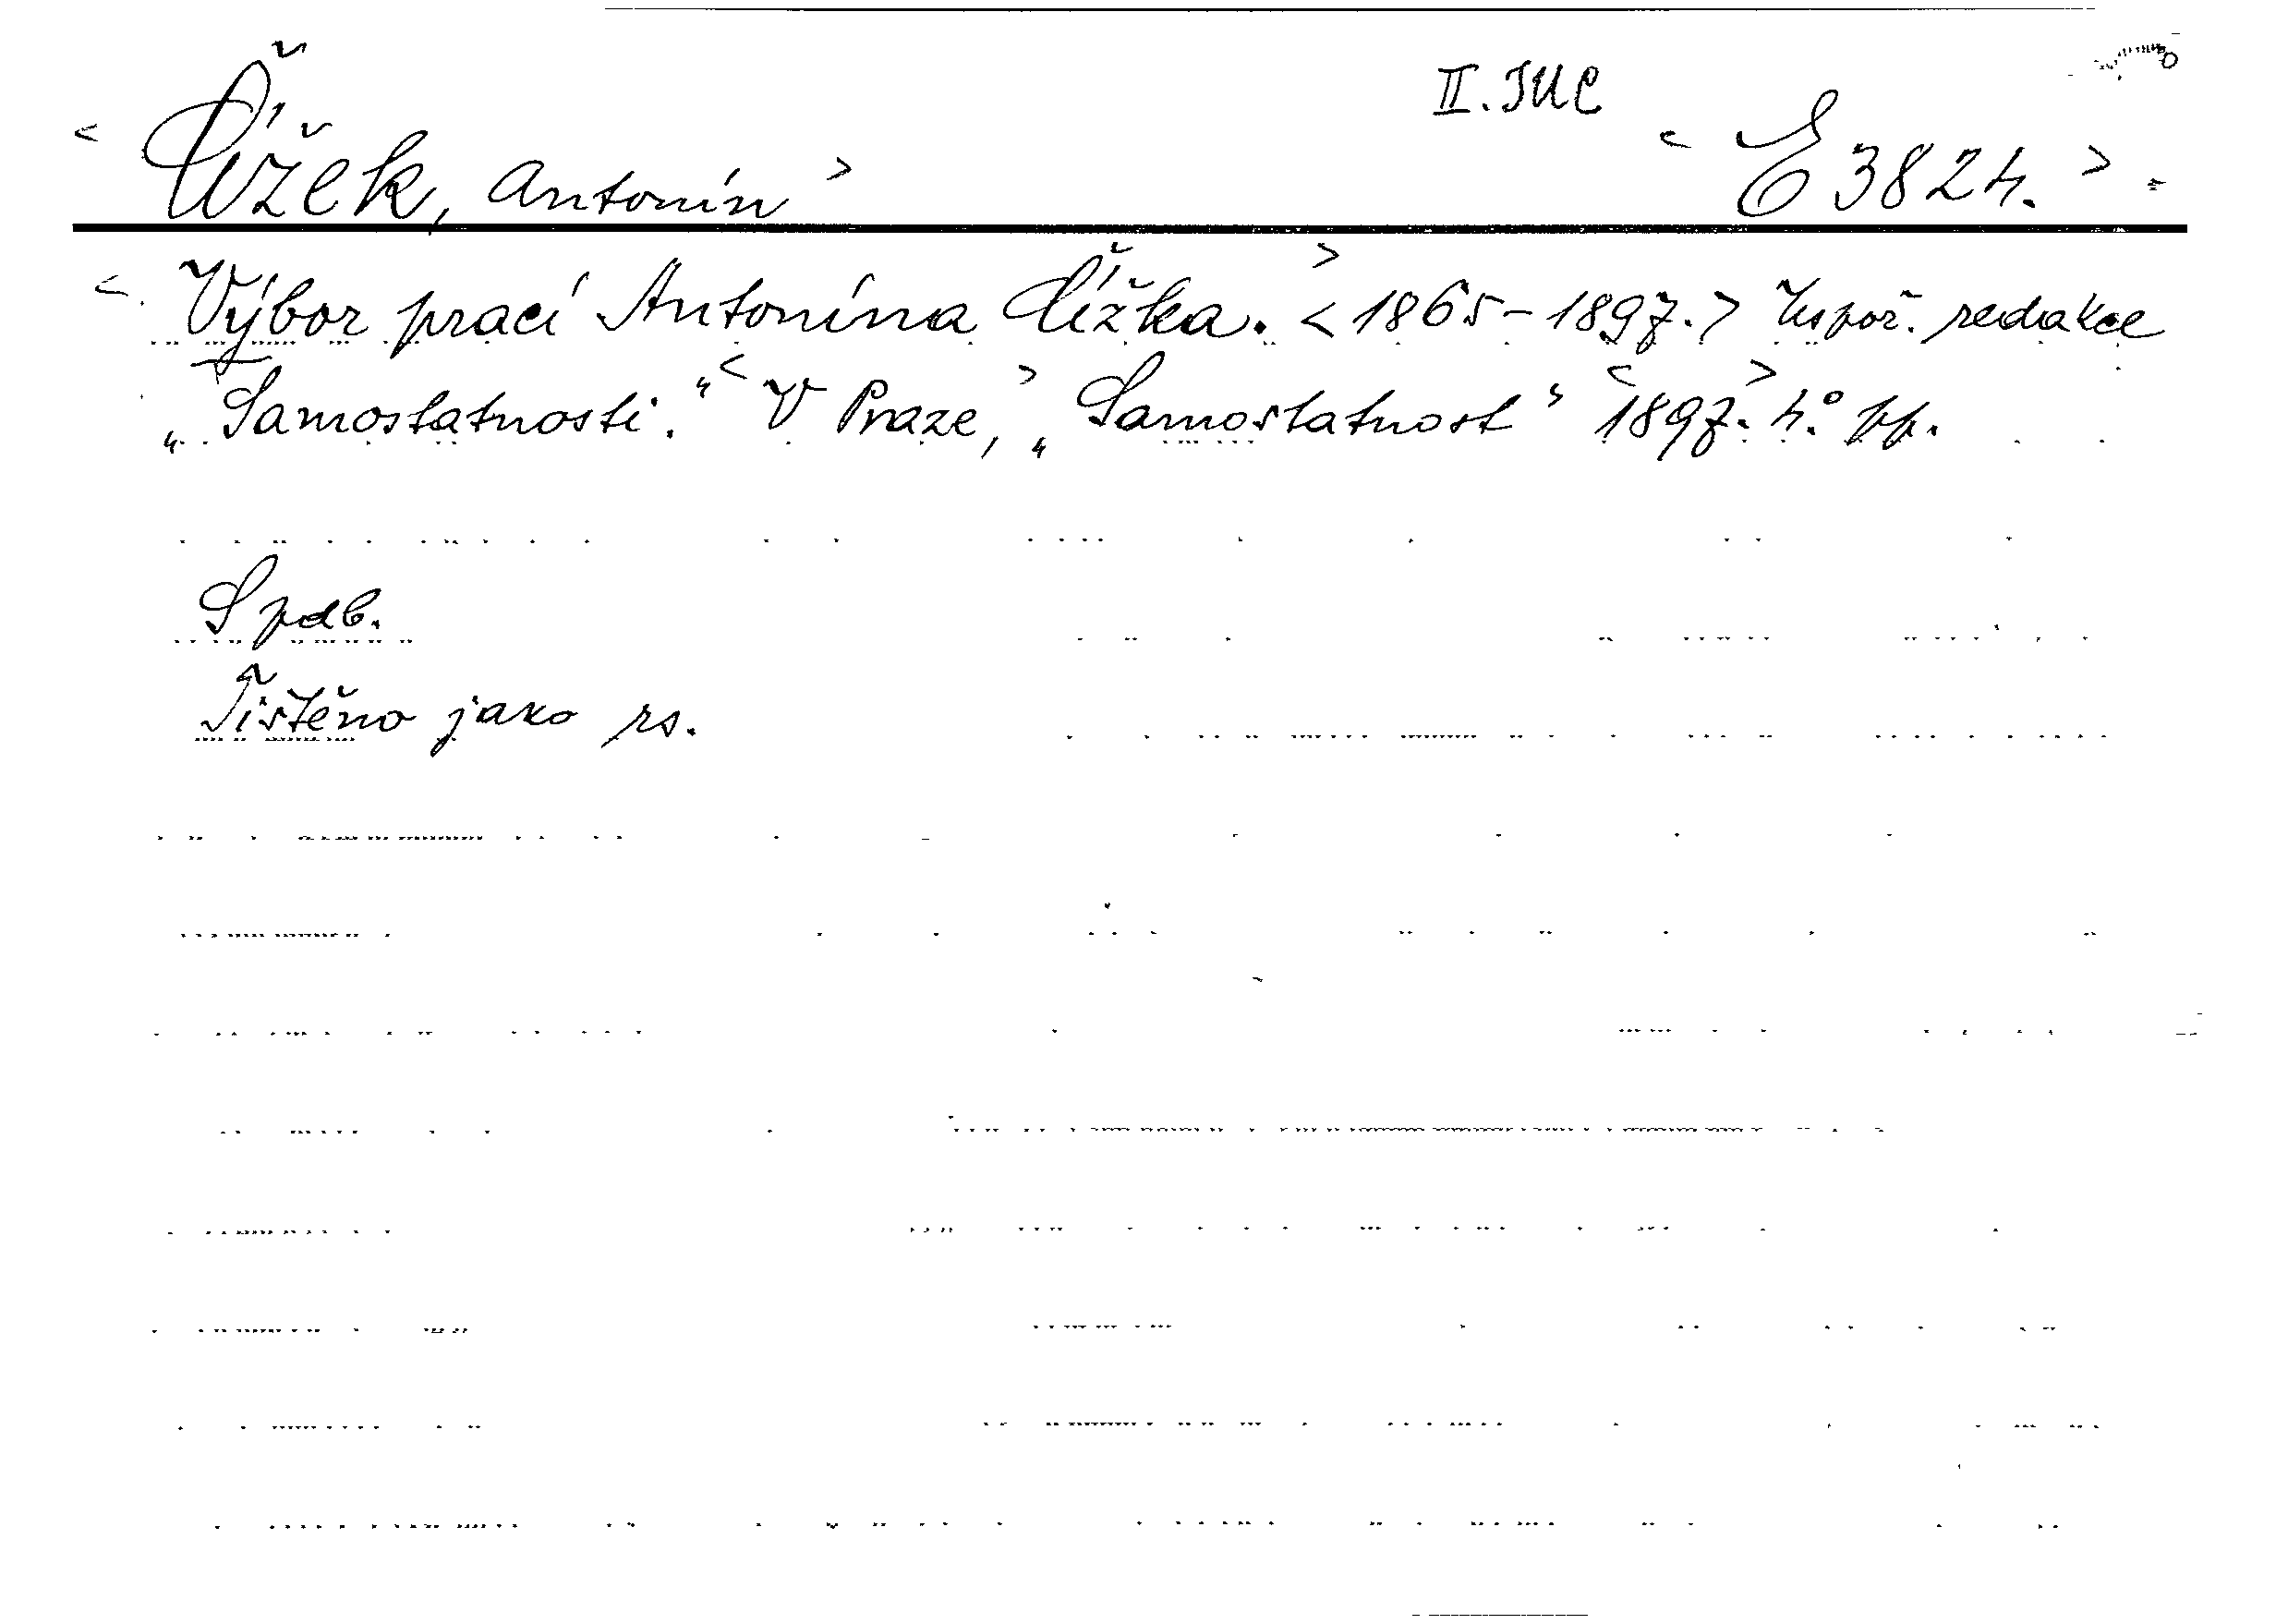 II. JUC
< Čížek, Antonín > < E 3824. >
< Výbor prací Antonína Čížka. > < 1865-1897. > Uspoř. redakce
„Samostatnosti." < V Praze, > „Samostatnost" < 1897. > 4.° pp.
S pdb.
Tištěno jako rs.